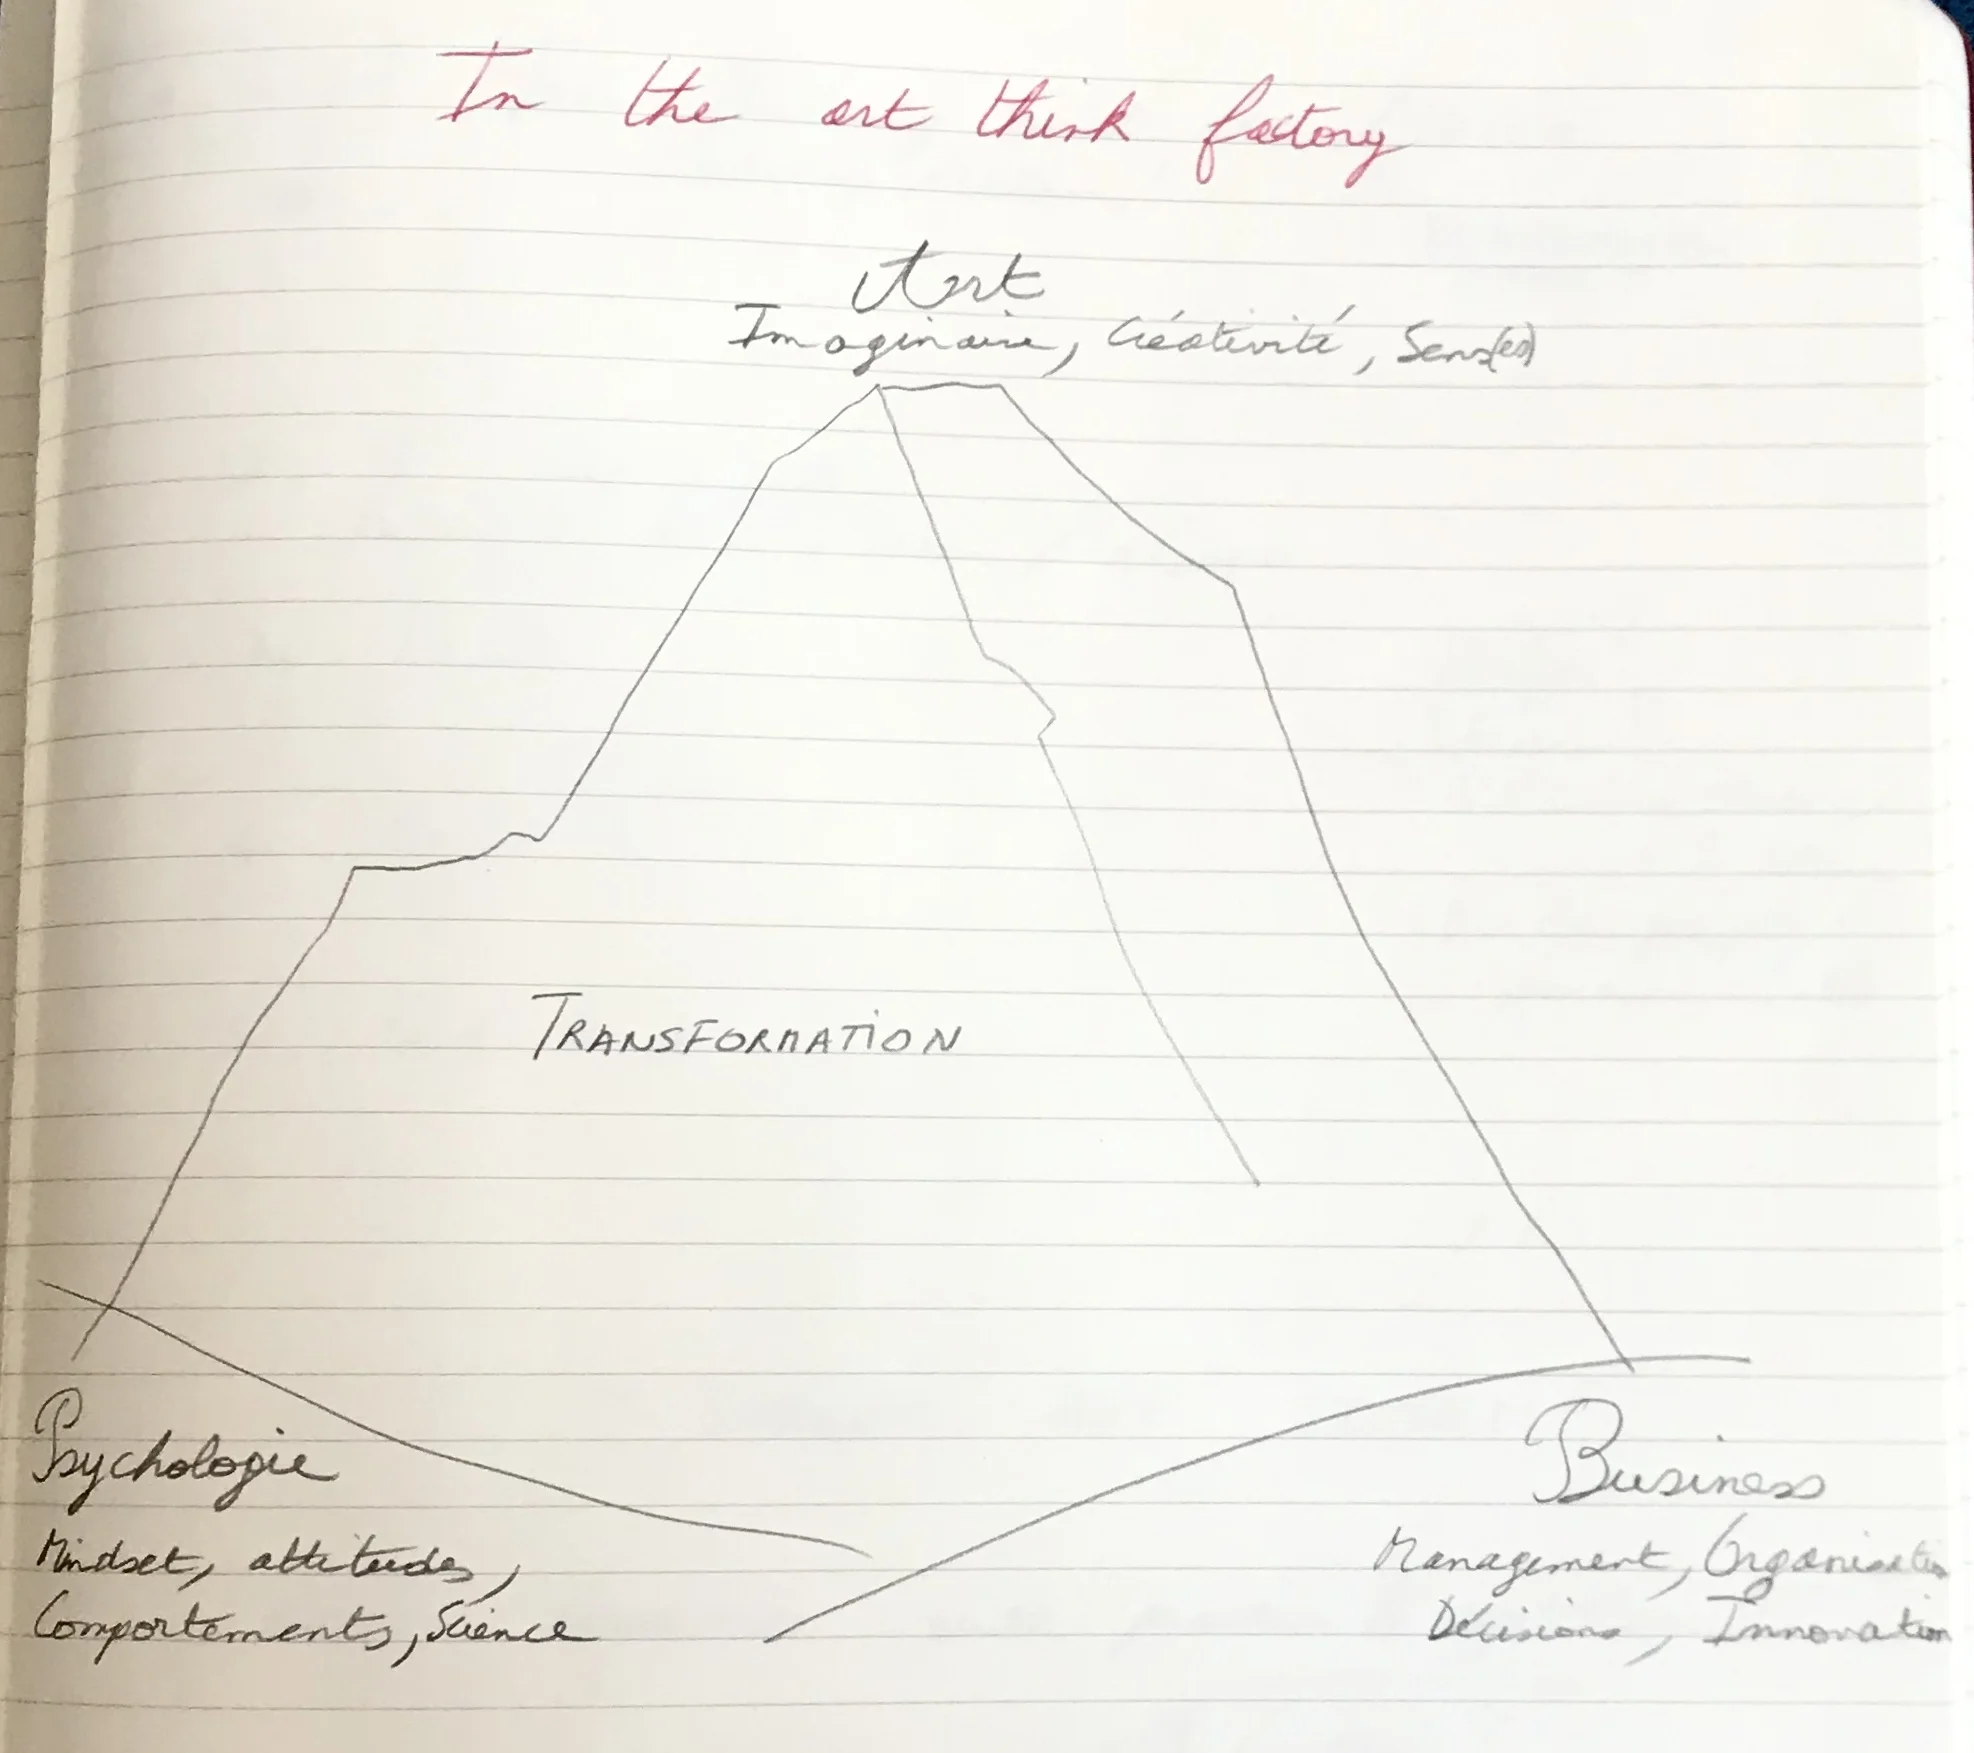 In the art think factory
Art
Imaginaire, Créativité, Sens(es)
TRANSFORMATION
Psychologie
Mindset, attitudes,
Comportements, Science
Business
Management, Organisation
Décisions, Innovation